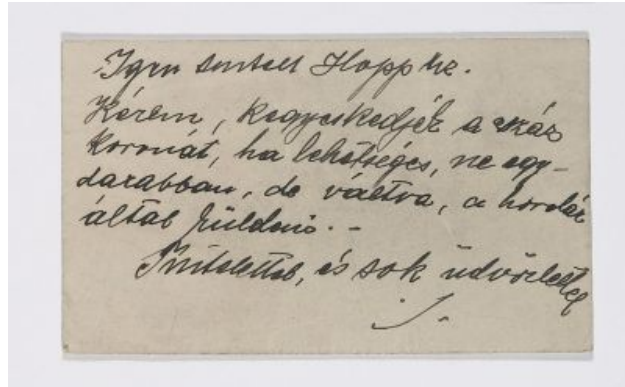 Igen tisztelt Hopp úr.
Kérem, kegyeskedjék a száz
koronát, ha lehetséges, ne egy-
darabban, de váltva, a hordár
által küldeni. -
Tisztelettel, és sok üdvözlettel
J.